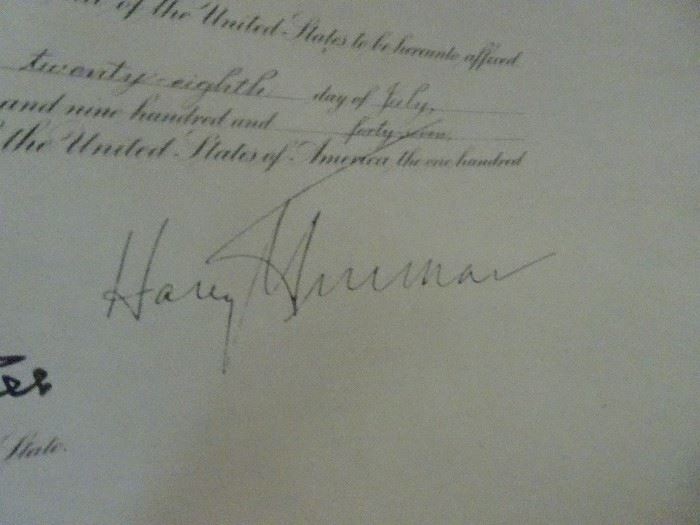 of the United States to be hereunto affixed.
twenty-eighth day of July,
and nine hundred and forty-seven
the United States of America the one hundred
Harry Truman
State.